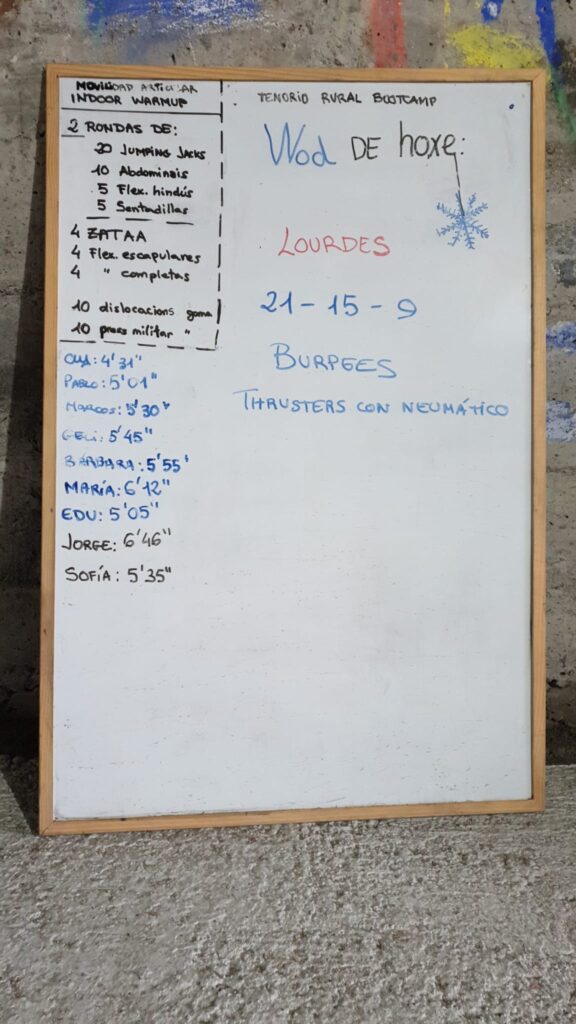 MOVILIDAD ARTICULAR
INDOOR WARMUP
2 RONDAS DE:
20 JUMPING JACKS
10 Abdominais
5 Flex. hindús
5 Sentadillas
4 ZATAA
4 Flex. escapulares
4 " completas
10 dislocacions goma
10 press militar "
PABLO: 5'01"
MARCOS: 5'30"
GELI: 5'45"
BÁRBARA: 5'55"
MARÍA: 6'12"
EDU: 5'05"
JORGE: 6'46"
SOFÍA: 5'35"
TENORIO RURAL BOOTCAMP
Wod DE hoxe:
LOURDES
21-15-9
BURPEES
THRUSTERS CON NEUMÁTICO